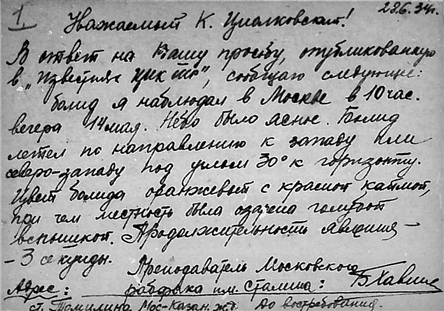 1
28.6.34г.
Уважаемый К. Циолковский!
В ответ на Вашу просьбу, опубликованную
в „Известиях ЦИК", сообщаю следующее:
болид я наблюдал в Москве в 10 час.
вечера 14 мая. Небо было ясное. Болид
летел по направлению к западу или
северо-западу под углом 30° к горизонту.
Цвет болида оранжевый с красной каймой,
при чем местность была озарена голубой
вспышкой. Продолжительность явления –
– 3 секунды.
Преподаватель Московского
Адрес: рабфака им. Сталина:
ст. Томилино Мос-Казан. ж.д. До востребования.